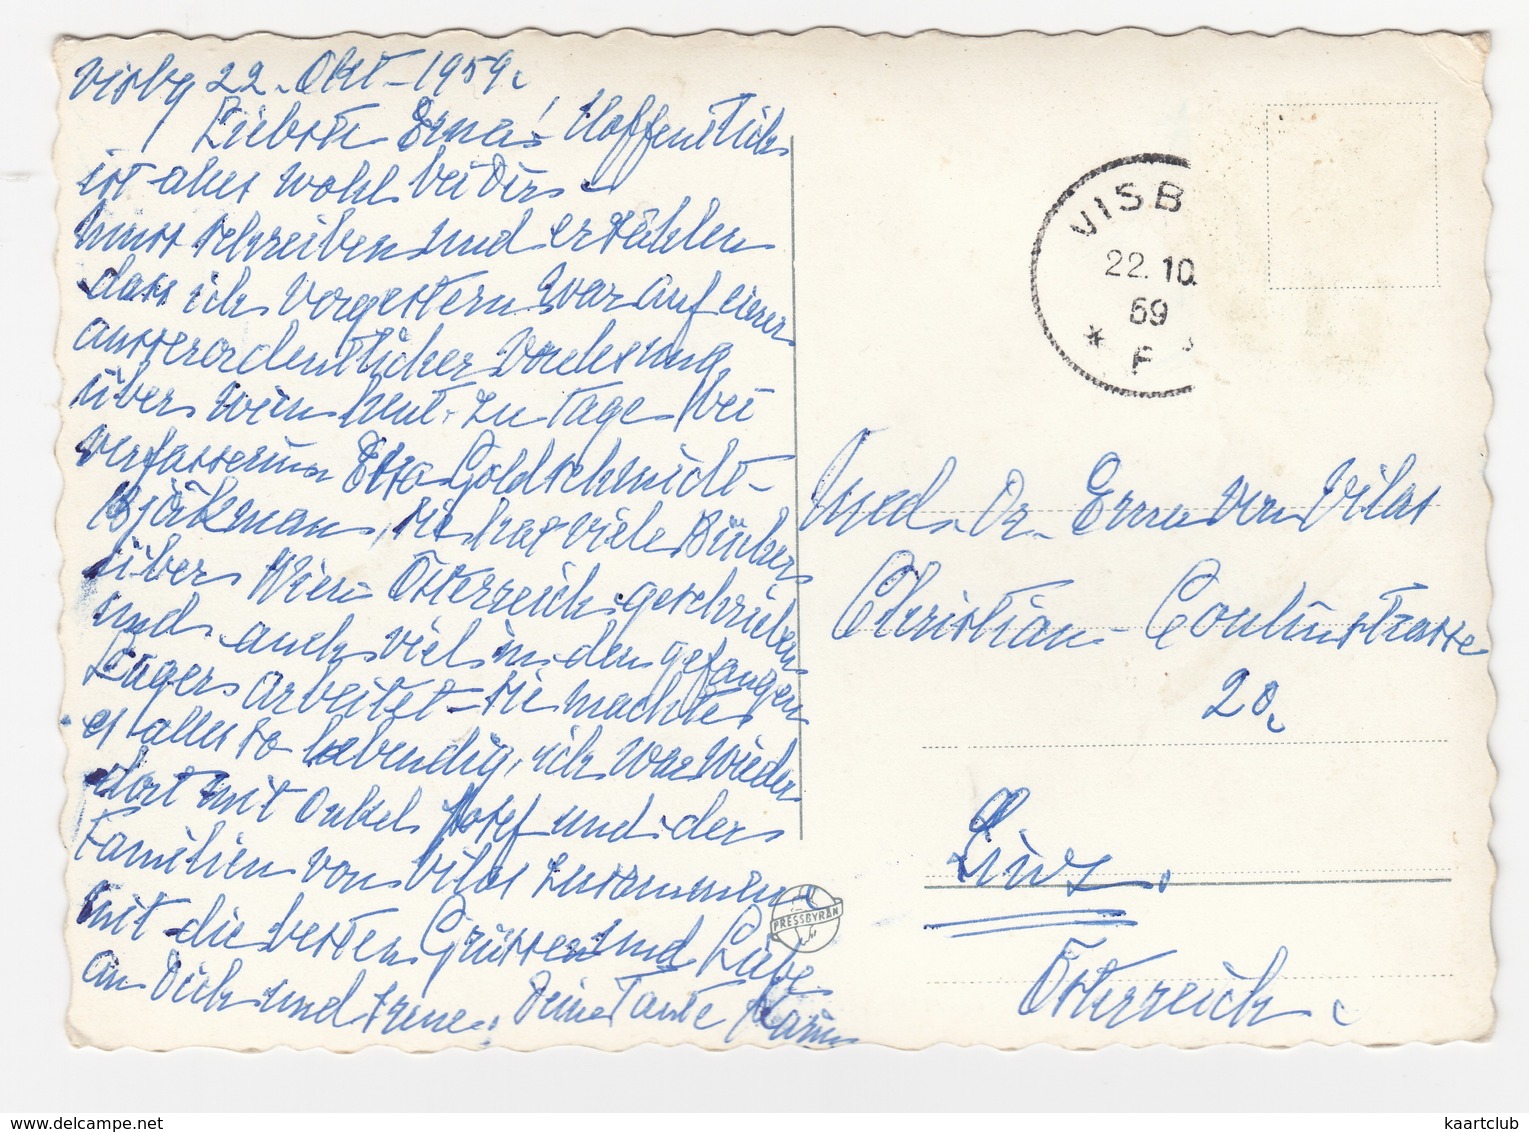 Visby 22. Okt - 1959.
Liebste Erna! Hoffentlich
ist alles wohl bei Dir -
muss schreiben und erzählen
dass ich vorgestern war auf einer
ausserordentlicher Vorlesung
über Wien heut. zu Tage bei
Verfasserin Elsa Goldschmidt-
Björkman, sie hat viele Bücher
über Wien - Österreich geschrieben
und auch viel in den gefangen
Lagers arbeitet - sie machte
es alles so lebendig, ich war wieder
dort mit Onkel Josef und der
Familien von Vilas zusammen
mit die besten Grüssen und Liebe
an Dich und Irene. Deine Tante Karin
VISB
22. 10.
69
* F
PRESSBYRÅN
Med. Dr. Erna von Vilas
Christian - Coulinstrasse
20.
Linz.
Österreich.
www.delcampe.net
kaartclub